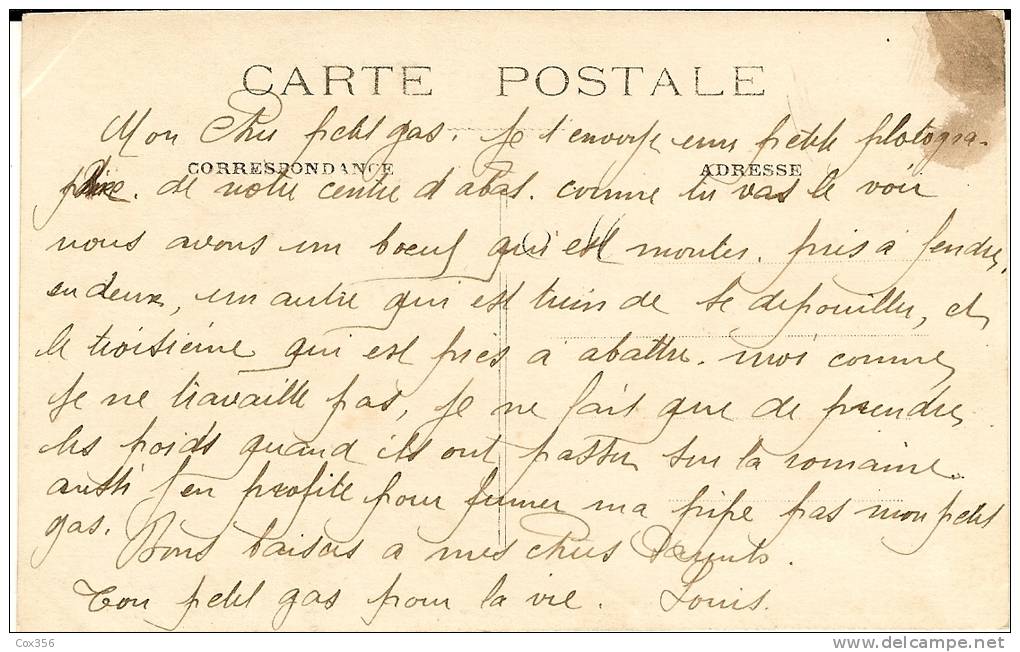 CARTE POSTALE
Mon Cher petit gas. Je t'envoye une petite photogra-
CORRESPONDANCE ADRESSE
phie. de notre centre d'abat. comme tu vas le voir
nous avons un boeuf qui est monter. pris à fendre,
en deux, un autre qui est train de se depouiller, et
le troisieine qui est pres à abattre. moi comme
je ne travaille pas, je ne fait que de prendre
les poids quand ils ont passer sur la romaine.
aussi j'en profite pour fumer ma pipe pas mon petit
gas. Bons baisers a mes chers Parents.
Ton petit gas pour la vie. Louis.
Cox356
delcampe.net